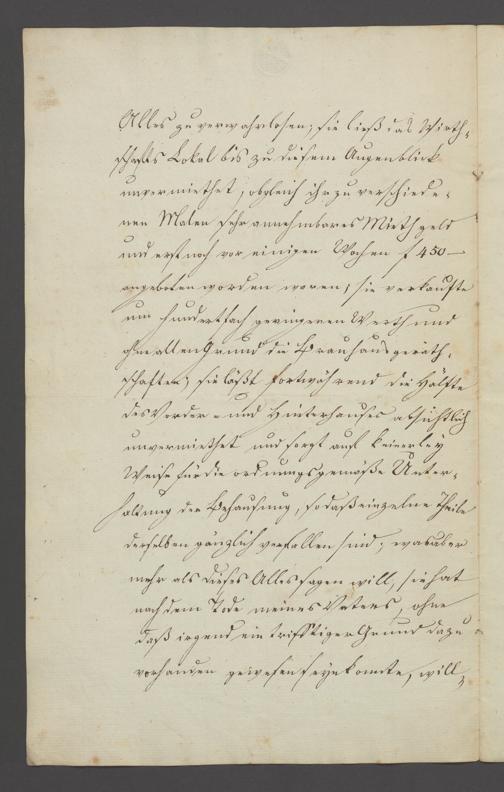 Alles zu verwahrlosen; sie ließ das Wirth-
schafts Lokal bis zu diesem Augenblick
unvermiethet, obgleich ihr zu verschiede-
nen Malen sehr annehmbares Miethgeld
und erst noch vor einigen Wochen f 450 —
angeboten worden waren; sie verkaufte
um hundertfach geringeren Werth und
ohne allen Grund die Brauhausgeräth-
schaften; sie läßt fortwährend die Hälfte
des Vorder- und Hinterhauses absichtlich
unvermiethet und sorgt auf keinerley
Weise für die ordnungsgemäße Unter-
haltung der Behausung, so daß einzelne Theile
derselben gänzlich verfallen sind; was aber
mehr als dieses Alles sagen will, sie hat
nach dem Tode meines Vaters, ohne
daß irgend ein trifftiger Grund dazu
vorhanden gewesen seyn konnte, will-